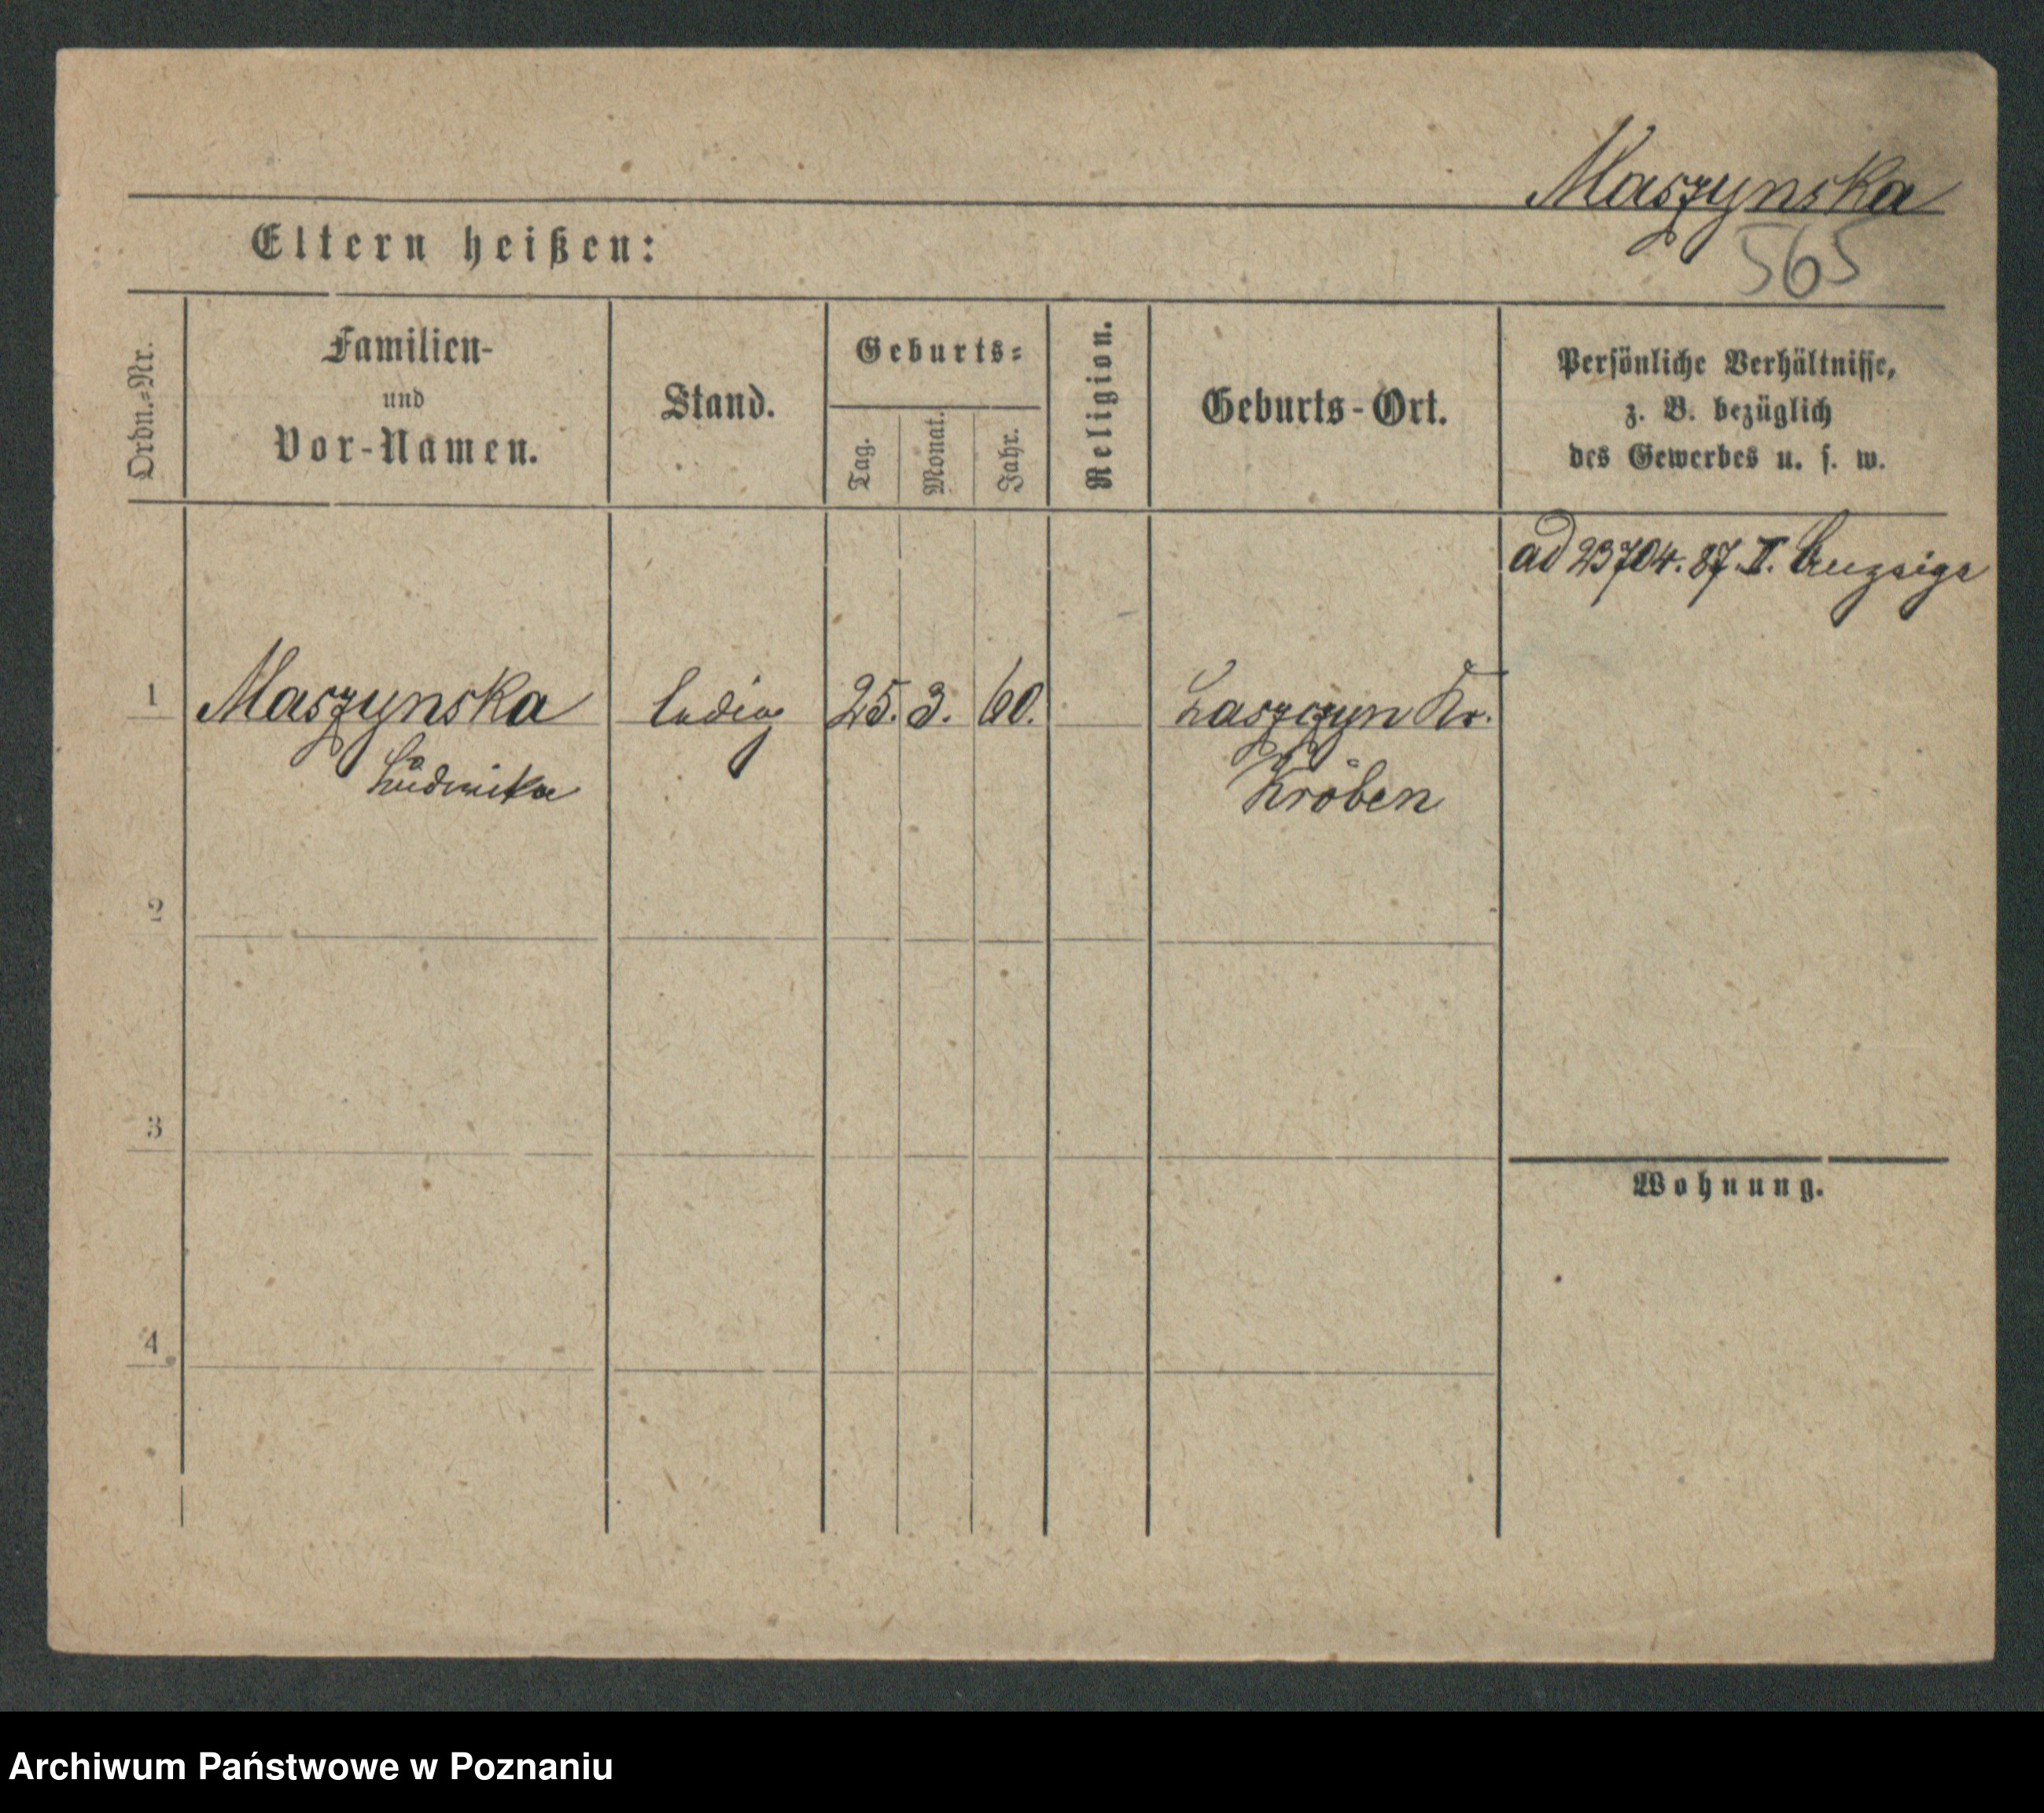 Maszynska
565
Eltern heißen:
Ordn.-Nr.
Familien-
und
Vor-Namen.
Stand.
Geburts-
Tag.
Monat.
Jahr.
Religion.
Geburts-Ort.
Persönliche Verhältnisse,
z. B. bezüglich
des Gewerbes u. s. w.
ad 23704. 87. II. Anzeige
1 Maszynska ledig 25. 3. 60. Laszczyn Kr.
Ludwika Kröben
2
3
Wohnung.
4
Archiwum Państwowe w Poznaniu